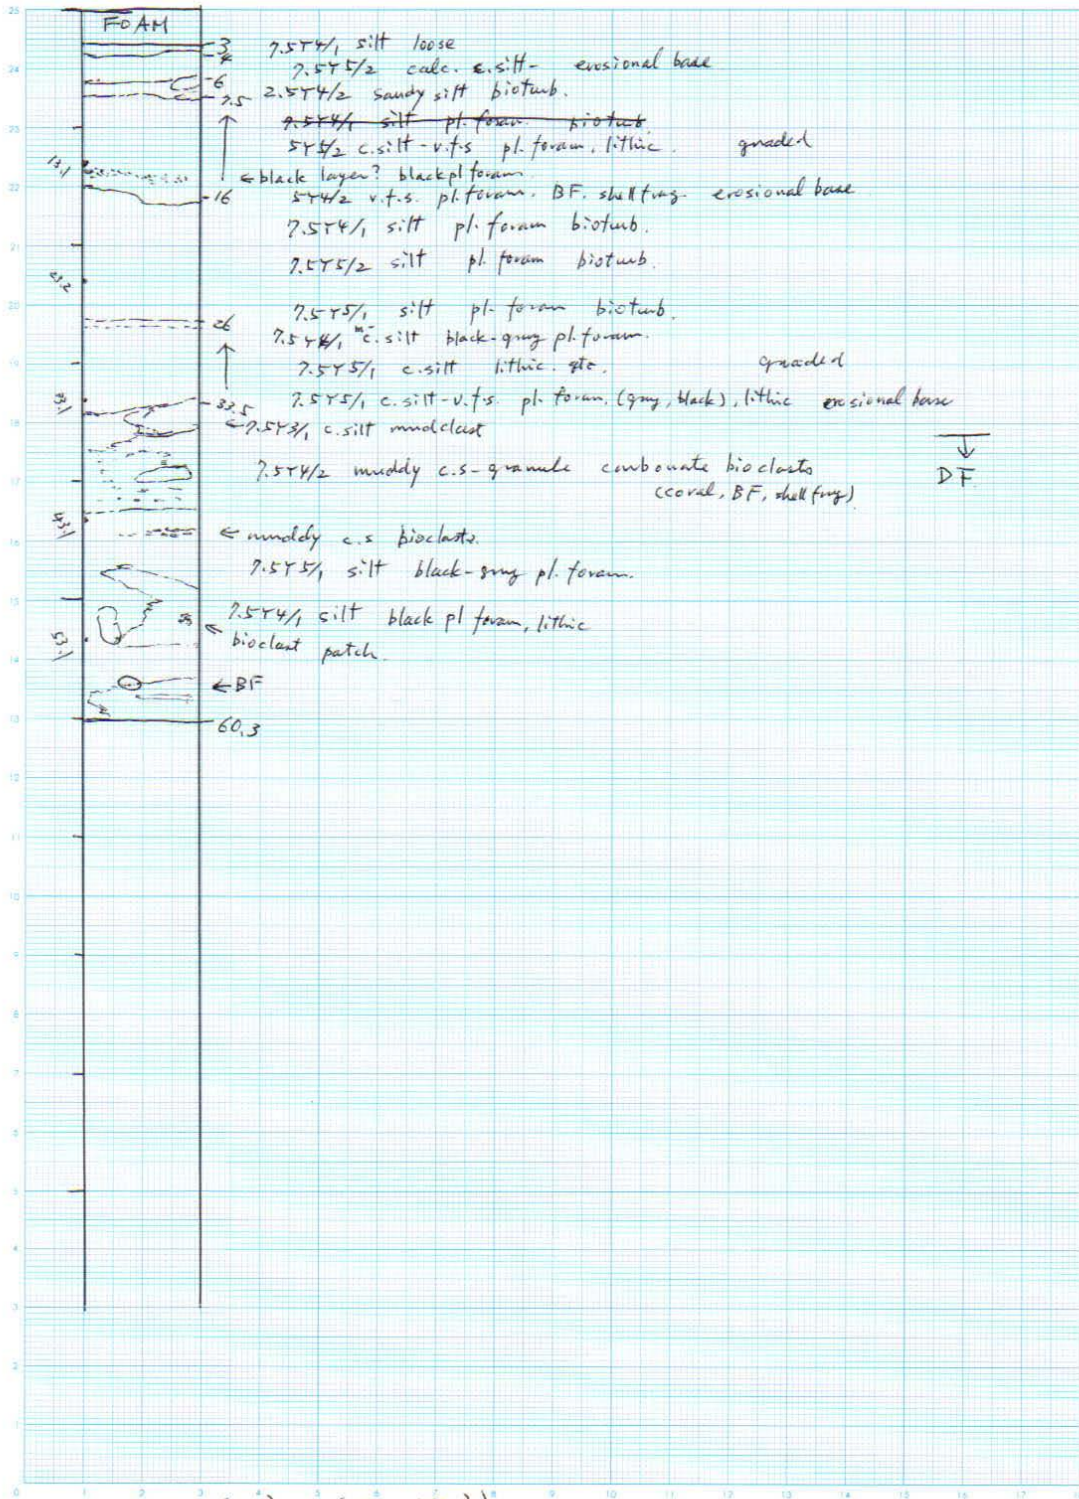 FOAM
3 7.5Y4/1 silt loose
4 7.5Y5/2 calc. c.silt- erosional base
6 2.5Y4/2 sandy silt bioturb.
7.5
7.5Y4/1 silt pl. foram bioturb.
5Y5/2 c.silt-v.f.s pl. foram, lithic. graded
13.1 ← black layer? black pl foram
16 5Y4/2 v.f.s. pl. foram. BF. shell frag. erosional base
7.5Y4/1 silt pl. foram bioturb.
7.5Y5/2 silt pl. foram bioturb.
23.2
7.5Y5/1 silt pl. foram bioturb.
26 7.5Y4/1 m-c. silt black-gray pl. foram.
7.5Y5/1 c.silt lithic. etc. graded
33.1 33.5 7.5Y5/1 c.silt-v.f.s. pl. foram. (gray, black), lithic erosional base
←7.5Y3/1 c.silt mudclast
7.5Y4/2 muddy c.s-granule carbonate bioclasts ↓ DF
(coral, BF, shell frag)
43.1 ← muddy c.s bioclasts.
7.5Y5/1 silt black-gray pl. foram.
7.5Y4/1 silt black pl foram, lithic
53.1 ← bioclast patch.
←BF
60.3
25
24
23
22
21
20
19
18
17
16
15
14
13
12
11
10
9
8
7
6
5
4
3
2
1
0
0 1 2 3 4 5 6 7 8 9 10 11 12 13 14 15 16 17